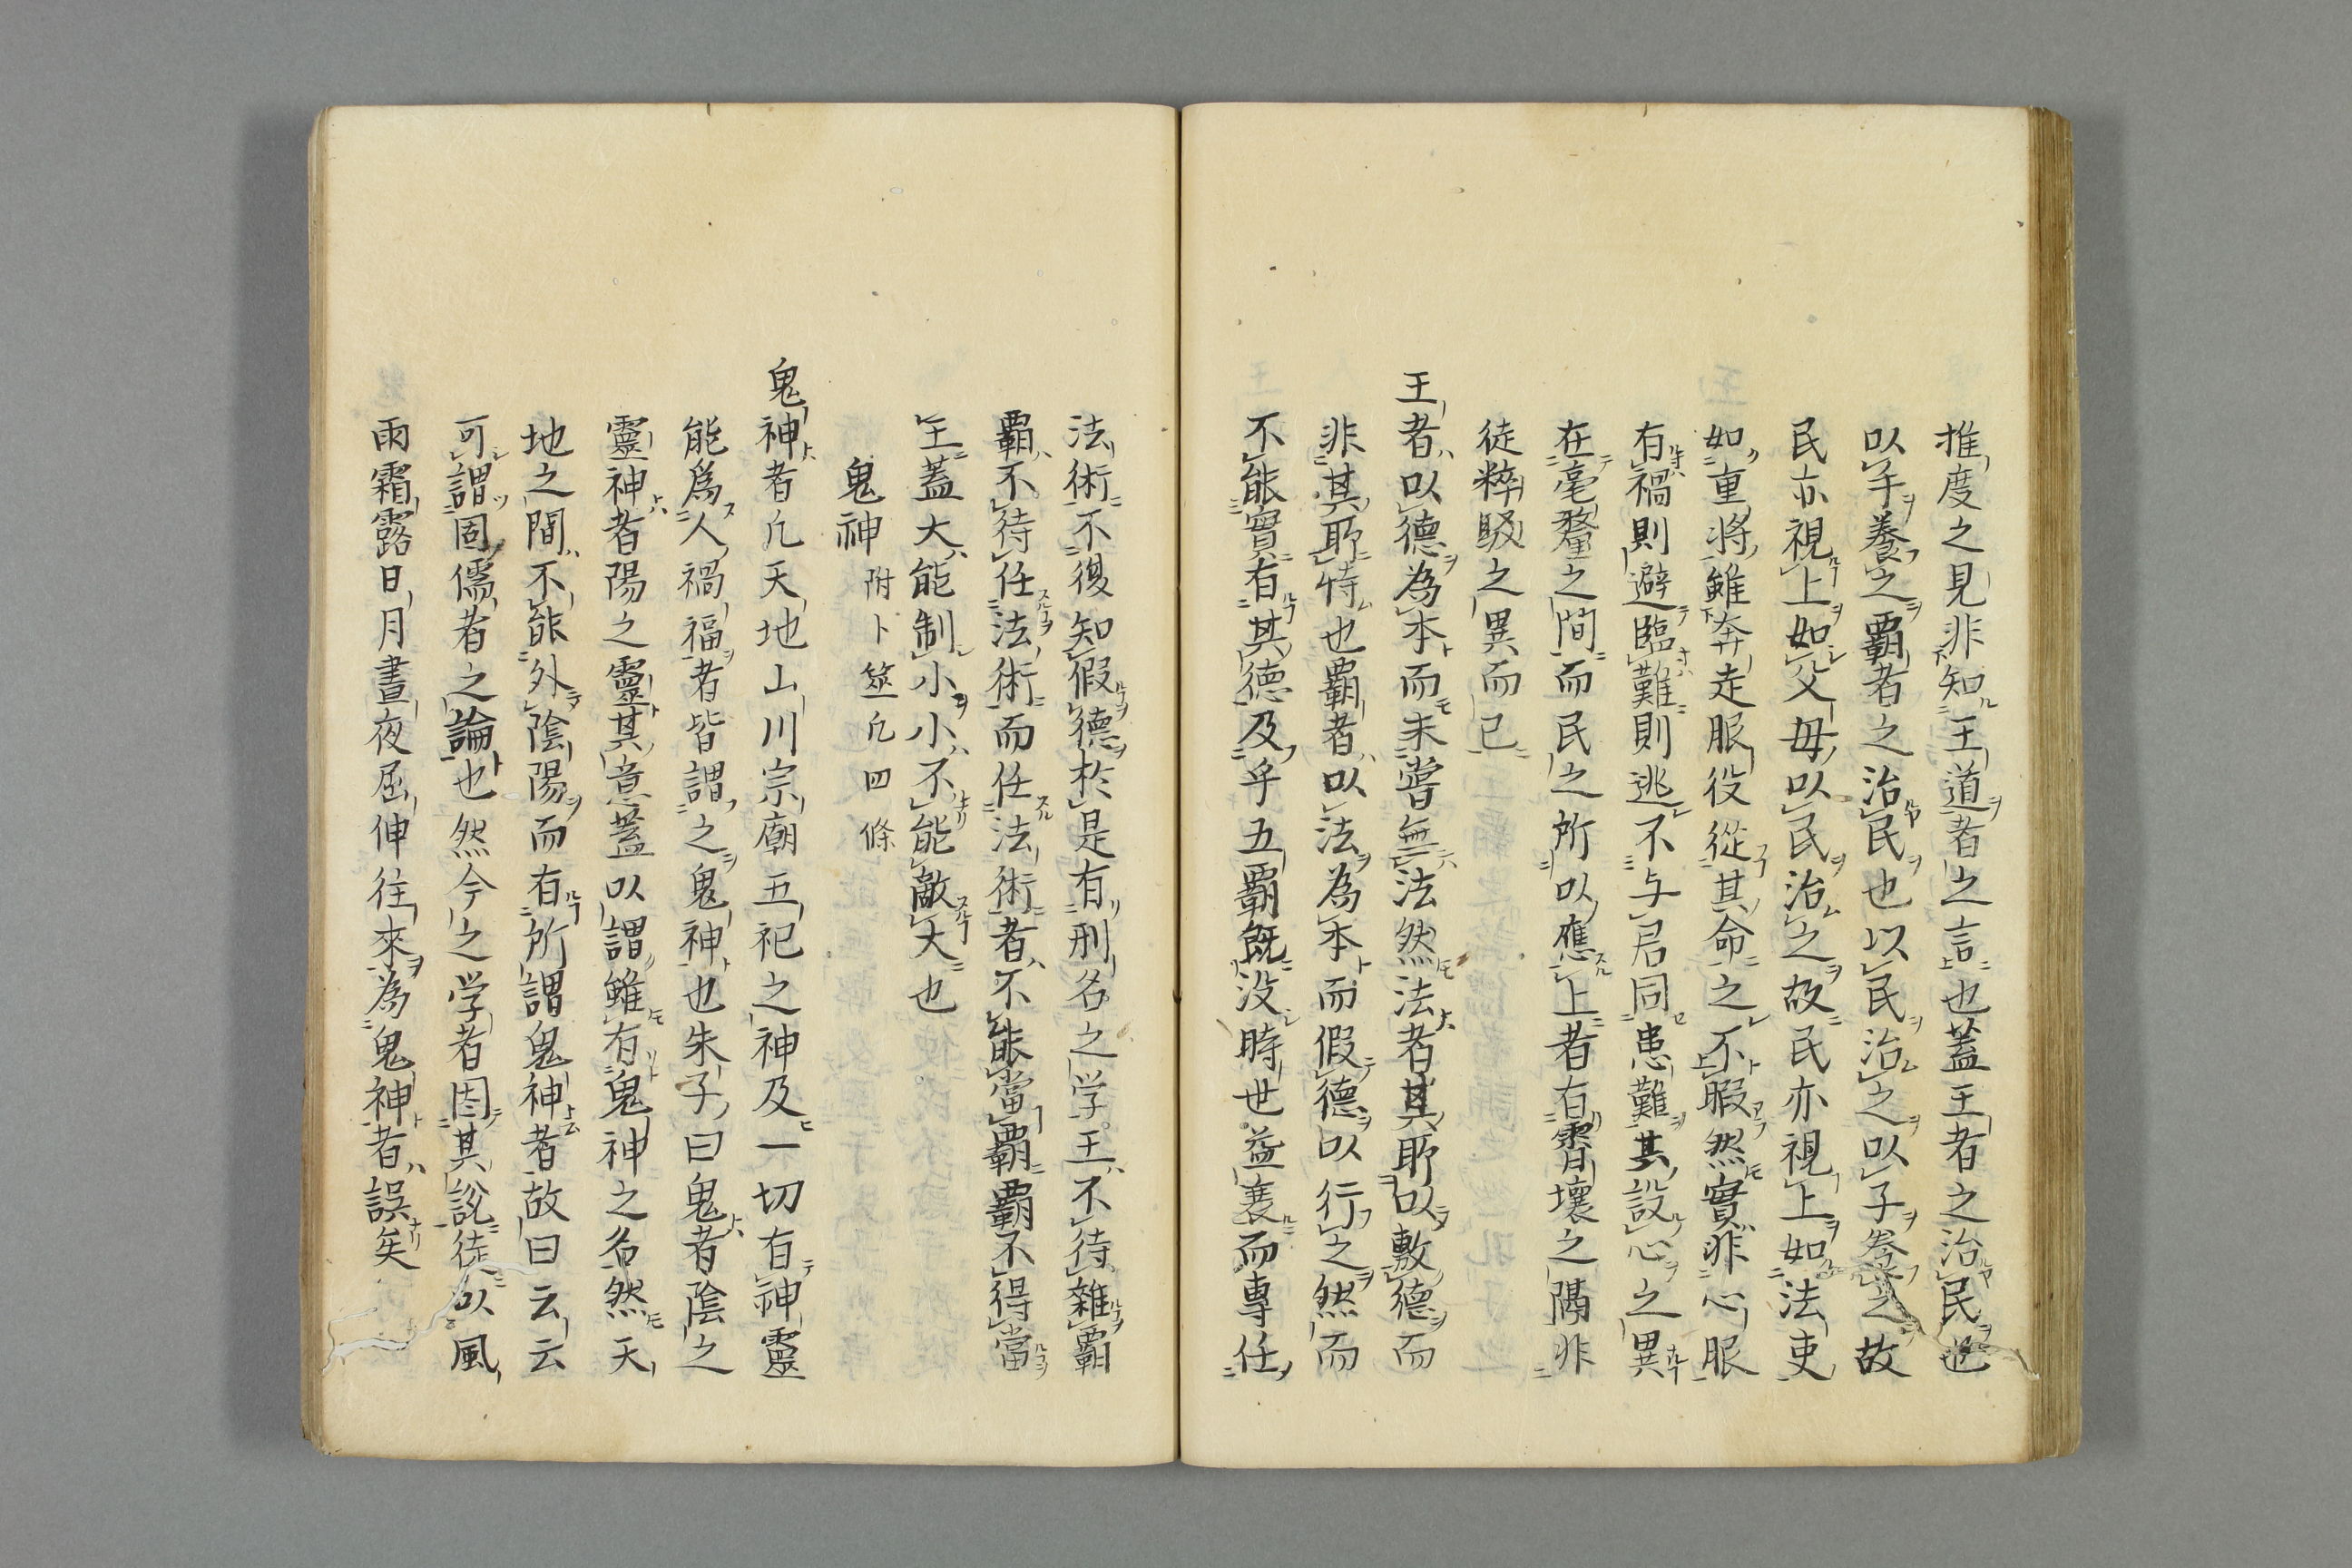 推度之見非知王道者之言也蓋王者之治民也
以子養之覇者之治民也以民治之以子養之故
民亦視上如父母以民治之故民亦視上如法吏
如重将雖奔走服役從其命之不暇然實非心服
有禍則避臨難則逃不与君同患難其設心之異
在毫釐之間而民之所以應上者有霄壤之隔非
徒粹駁之異而已
王者以德為本而未嘗無法然法者其所以敷德而
非其所恃也覇者以法為本而假德以行之然而
不能實有其德及乎五覇既没時世益衰而專任
法術不復知假德於是有刑名之学王不待雜覇
覇不待任法術而任法術者不能當覇覇不得當
王蓋大能制小小不能敵大也
鬼神 附卜筮凢四條
鬼神者凢天地山川宗廟五祀之神及一切有神靈
能爲人禍福者皆謂之鬼神也朱子曰鬼者陰之
靈神者陽之靈其意蓋以謂雖有鬼神之名然天
地之間不能外陰陽而有所謂鬼神者故曰云云
可謂固儒者之論也然今之学者因其說徒以風
雨霜露日月晝夜屈伸往來為鬼神者誤矣